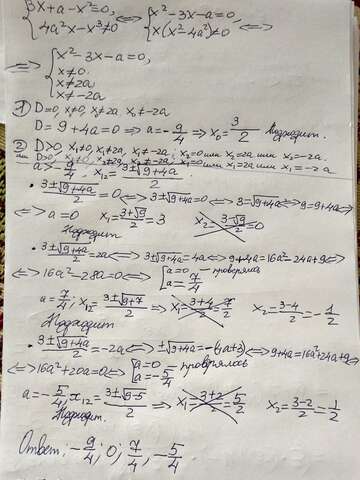 {3x+a-x²=0, 4a²x-x³≠0 <=> {x²-3x-a=0, x(x²-4a²)≠0 <=>
<=> {x²-3x-a=0, x≠0, x≠2a, x≠-2a
1) D=0, x₁≠0, x₁≠2a, x₁≠-2a
D=9+4a=0 => a=-9/4 => x₀=3/2 Подходит.
2) D>0, x₁≠0, x₁≠2a, x₁≠-2a, x₂=0 или x₂=2a или x₂=-2a.
или D>0, x₂≠0, x₂≠2a, x₂≠-2a, x₁=0 или x₁=2a или x₁=-2a
a>-9/4, x₁₂=(3±√9+4a)/2
• (3±√9+4a)/2=0 <=> 3±√9+4a=0 <=> 3=√9+4a <=> 9=9+4a <=>
<=> a=0 x₁=(3+√9)/2=3 x₂=(3-√9)/2=0
Подходит
• (3±√9+4a)/2=2a <=> 3±√9+4a=4a <=> 9+4a=16a²-24a+9 <=>
<=> 16a²-28a=0 <=> [a=0 - проверяли, a=7/4
a=7/4, x₁₂=(3±√9+7)/2 x₁=(3+4)/2=7/2 x₂=(3-4)/2=-1/2
Подходит
• (3±√9+4a)/2=-2a <=> ±√9+4a=-(4a+3) <=> 9+4a=16a²+24a+9 <=>
<=> 16a²+20a=0 <=> [a=0 - проверялась, a=-5/4
a=-5/4, x₁₂=(3±√9-5)/2 => x₁=(3+2)/2=5/2 x₂=(3-2)/2=-1/2
Подходит.
Ответ: -9/4; 0; 7/4, -5/4